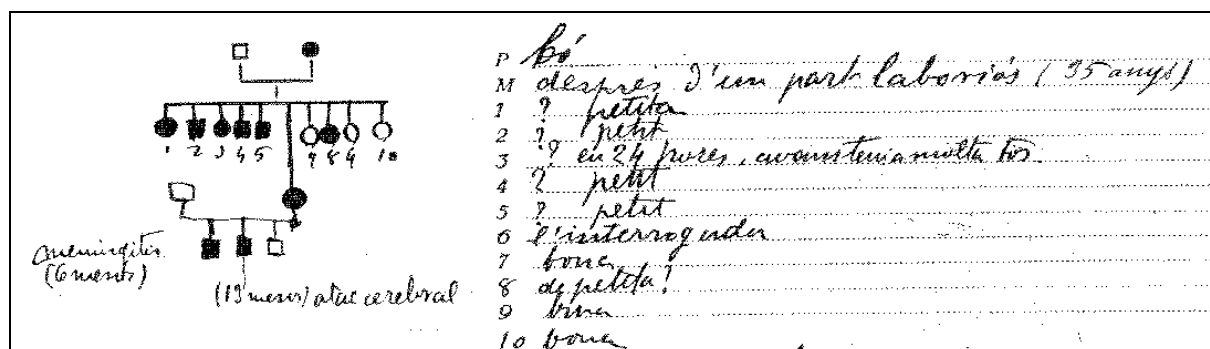 1 2 3 4 5 7 8 9 10
meningitis
(6 mesos)
(13 mesos) atac cerebral
P bó
M després d'un part laboriós (35 anys)
1 ? petita
2 ? petit
3 ? en 24 hores, avans tenia molta tos
4 ? petit
5 ? petit
6 l'interrogada
7 bona
8 de petita!
9 bona
10 bona